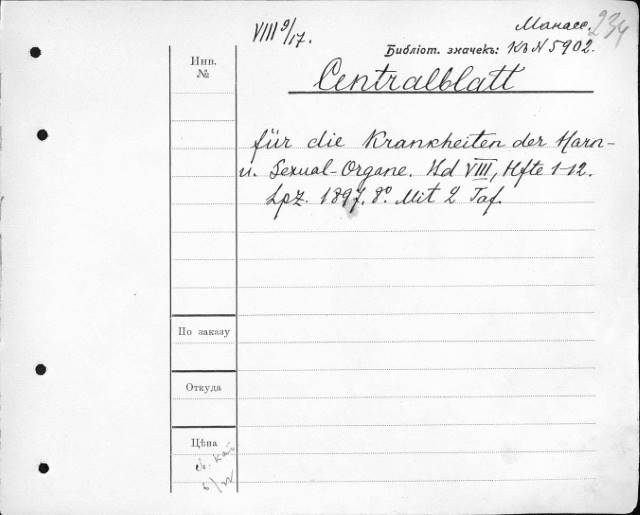 VIII 9/17.
Манасс. 234
Библіот. значекъ: Къ N 5902.
Инв.
№
Centralblatt
für die Krankheiten der Harn-
u. Sexual-Organe. Bd VIII, Hfte 1-12.
Lpz. 1897. 8º. Mit 2 Taf.
По заказу
Откуда
Цѣна